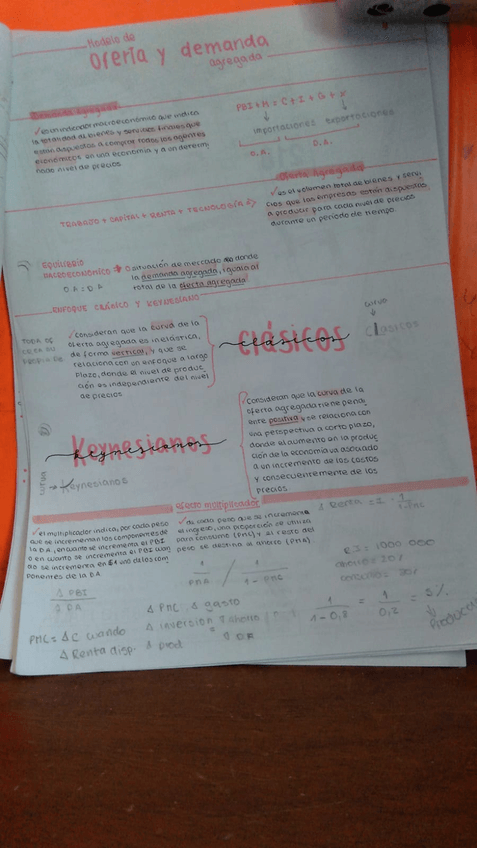 Modelo de
oferta y demanda
agregada
Demanda Agregada
✓ es un indicador macroeconómico que indica
la totalidad de bienes y servicios finales que
están dispuestos a comprar todos los agentes
económicos en una economía y a un determi-
nado nivel de precios.
PBI + M = C + I + G + X
importaciones exportaciones
O.A. D.A.
Oferta Agregada
✓ es el volumen total de bienes y servi-
cios que las empresas están dispuestas
a producir para cada nivel de precios
durante un período de tiempo.
TRABAJO + CAPITAL + RENTA + TECNOLOGÍA
EQUILIBRIO
MACROECONÓMICO
situación de mercado donde
la demanda agregada, iguala al
total de la oferta agregada
OA = DA
ENFOQUE CLÁSICO Y KEYNESIANO
✓ consideran que la curva de la
oferta agregada es inelástica,
de forma vertical, y que se
relaciona con un enfoque a largo
plazo, donde el nivel de produc
ción es independiente del nivel
de precios
clásicos
curva
Clasicos
Keynesianos
curva
Keynesianos
consideran que la curva de la
oferta agregada tiene pend
iente positiva y se relaciona con
una perspectiva a corto plazo,
donde el aumento en la produc
ción de la economía va asociado
a un incremento de los costos
y consecuentemente de los
precios
efecto multiplicador
✓ el multiplicador indica, por cada peso
que se incrementan los componentes de
la DA, en cuanto se incrementa el PBI
o en cuanto se incrementa el PBI cuan
do se incrementa en $1 uno de los com
ponentes de la DA
✓ de cada peso que se incrementa
el ingreso, una proporción se utiliza
para consumo (PMC) y el resto del
peso se destina al ahorro (PMA).
Δ Renta = I · 1/1-PMC
1/PMA / 1/1-PMC
1000 000
ahorro = 20%
consumo = 80%
Δ PBI
Δ DA
Δ PMC Δ gasto
Δ inversion
1/1-0,8 = 1/0,2 = 5%
PMC = Δ C cuando
Δ Renta disp.
Δ prod